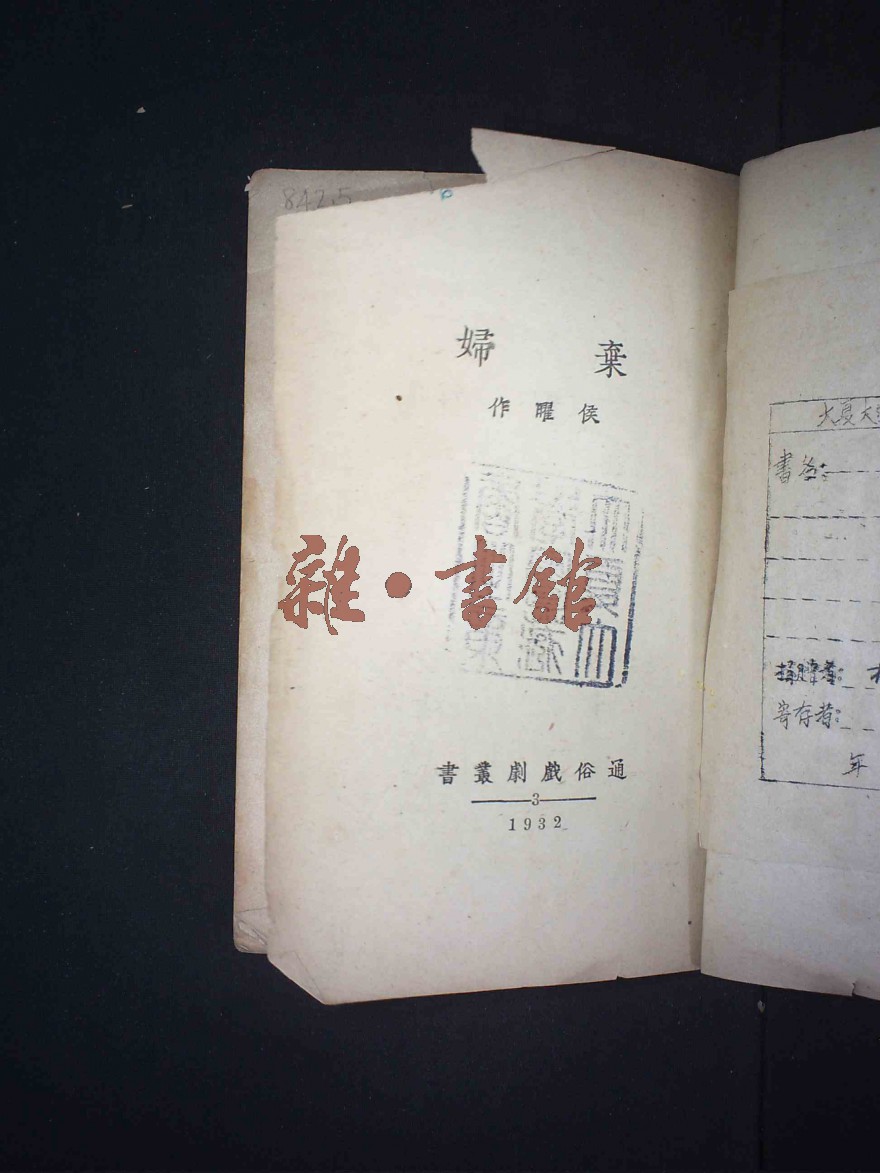 842.5
棄婦
侯曜作
雜·書館
通俗戲劇叢書
3
1932
大夏大
書名:
捐贈者:
寄存者:
年